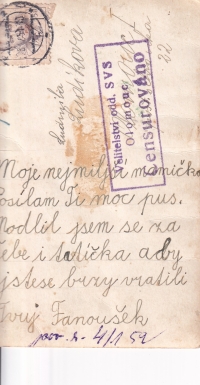 Ludmila
Ludíkova
22
Velitelství odd. SVS
Olomouc
Censurováno
Moje nejmilejší mamičko
Posílám Ti moc pus.
Modlil jsem se za
Tebe i tatička aby
jste se brzy vratili
Tvuj Fanoušek
4/1 52